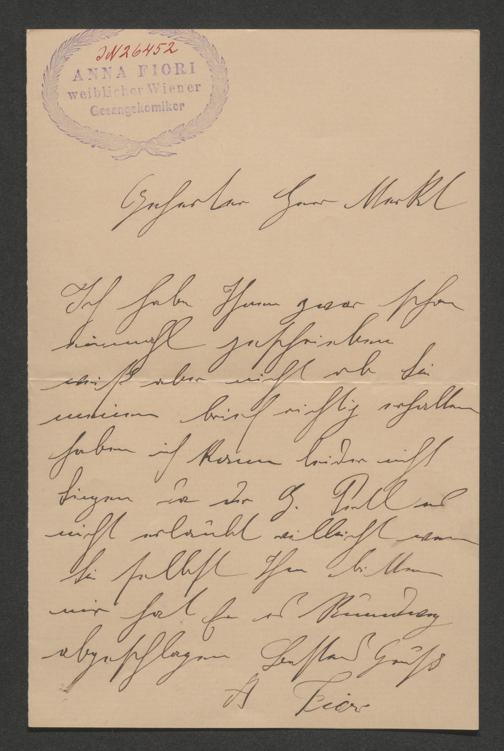 JN26452
ANNA FIORI
weiblicher Wiener
Gesangskomiker
Geehrter Herr Merkl
Ich habe Ihnen zwar schon
einmahl geschrieben
weiß aber nicht ob Sie
meinen brief richtig erhalten
haben ich kann leider nicht
Singen da der H. es
nicht erlaubt villeicht wenn
Sie selbst Ihn bitten
mir hat Er es Rundweg
abgeschlagen Gruß
A Fiori